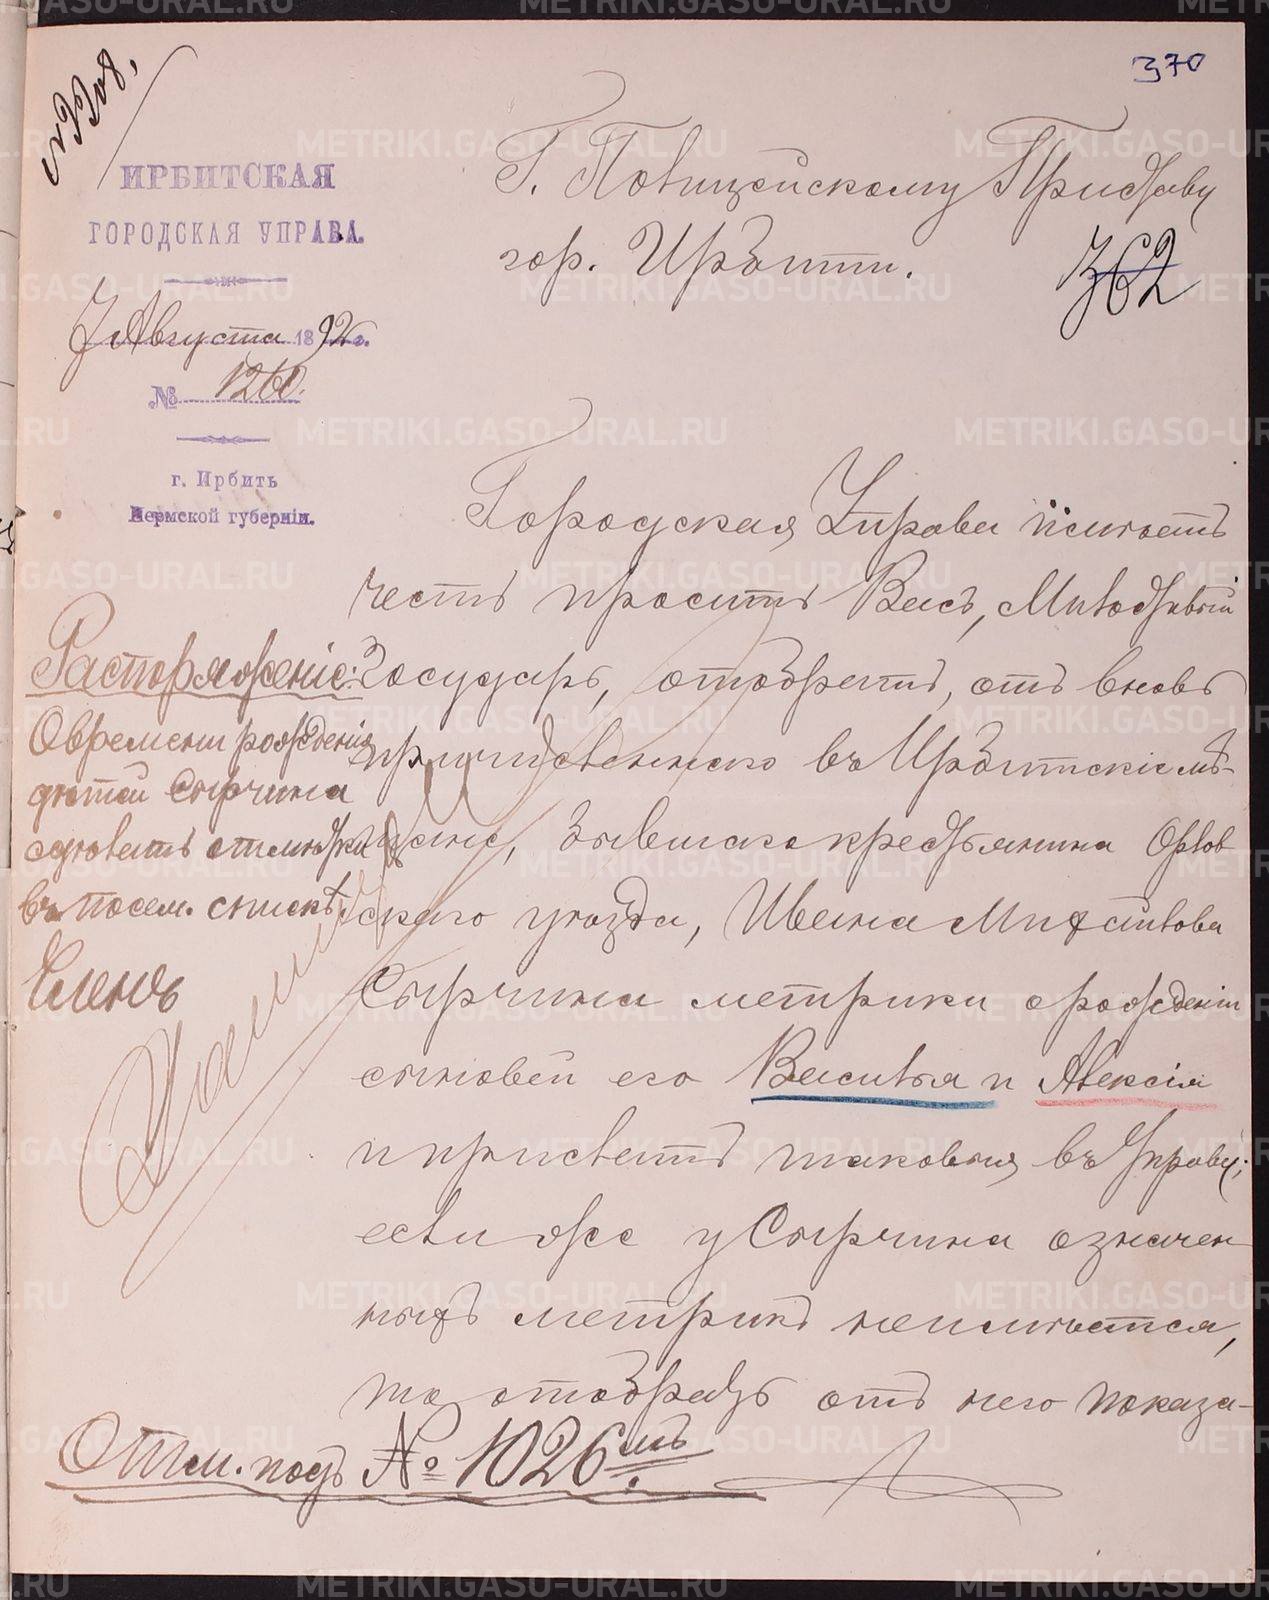 370
№ 3308,
ИРБИТСКАЯ
ГОРОДСКАЯ УПРАВА.
7 Августа 1892 г.
№ 1260.
г. Ирбить
Пермской губерніи.
Г. Полицейскому Приставу
гор. Ирбити.
362
Городская Управа имѣетъ
честь просить Васъ, Милостивый
Государь, отобрать, отъ вновь
причисленнаго въ Ирбитскіе мѣ-
щане, бывшаго крестьянина Орлов
скаго уѣзда, Ивана Михайлова
Сырчина метрики о рожденіи
сыновей его Василья и Алексія
и прислать таковыя въ Управу;
если же у Сырчина означен
ныхъ метрикъ неимѣется,
то отобрать отъ него показа-
Распоряженіе:
О времени рожденія
дѣтей Сырчина
сдѣлать отмѣтки
въ посем. спискѣ.
Членъ
Отм. подъ № 1026мъ.
METRIKI.GASO-URAL.RU